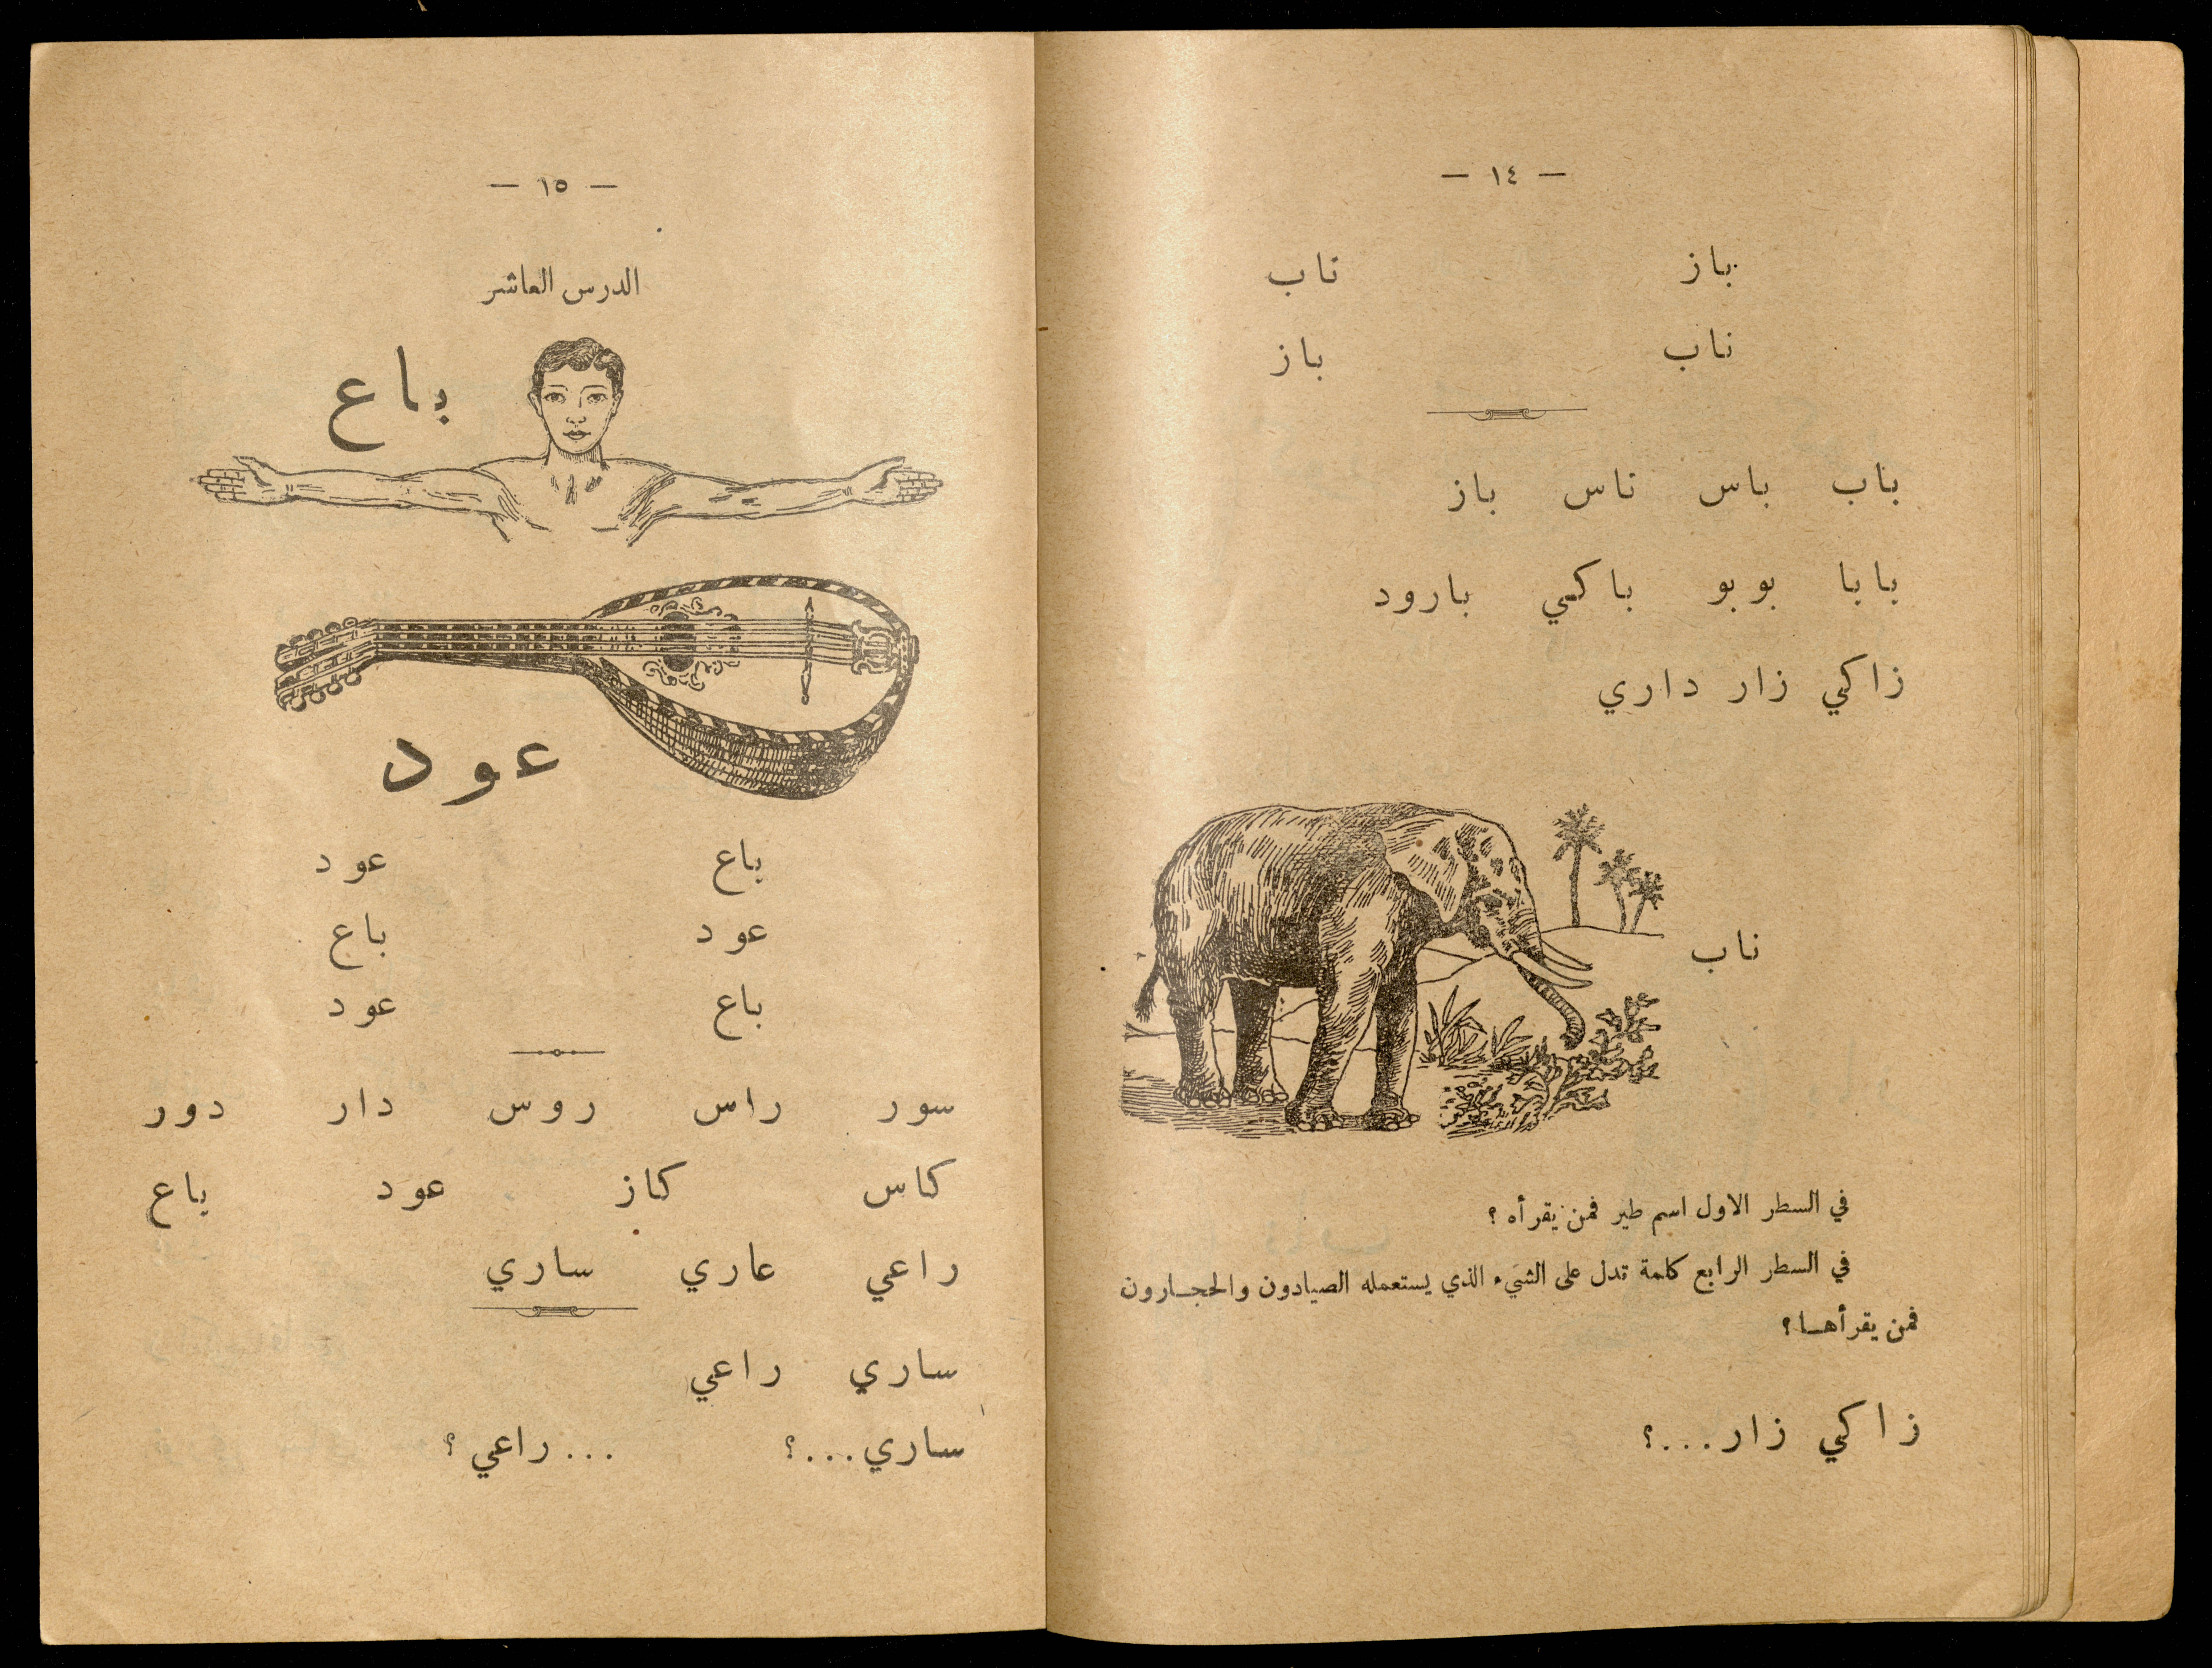 — ١٤ —
باز ناب
ناب باز
باب باس ناس باز
بابا بوبو باكي بارود
زاكي زار داري
ناب
في السطر الاول اسم طير فمن يقرأه ؟
في السطر الرابع كلمة تدل على الشيء الذي يستعمله الصيادون والحجارون
فمن يقرأها ؟
زاكي زار...؟
— ١٥ —
الدرس العاشر
باع
عود
باع عود
عود باع
باع عود
سور راس روس دار دور
كاس كاز عود باع
راعي عاري ساري
ساري راعي
ساري...؟ ...راعي ؟